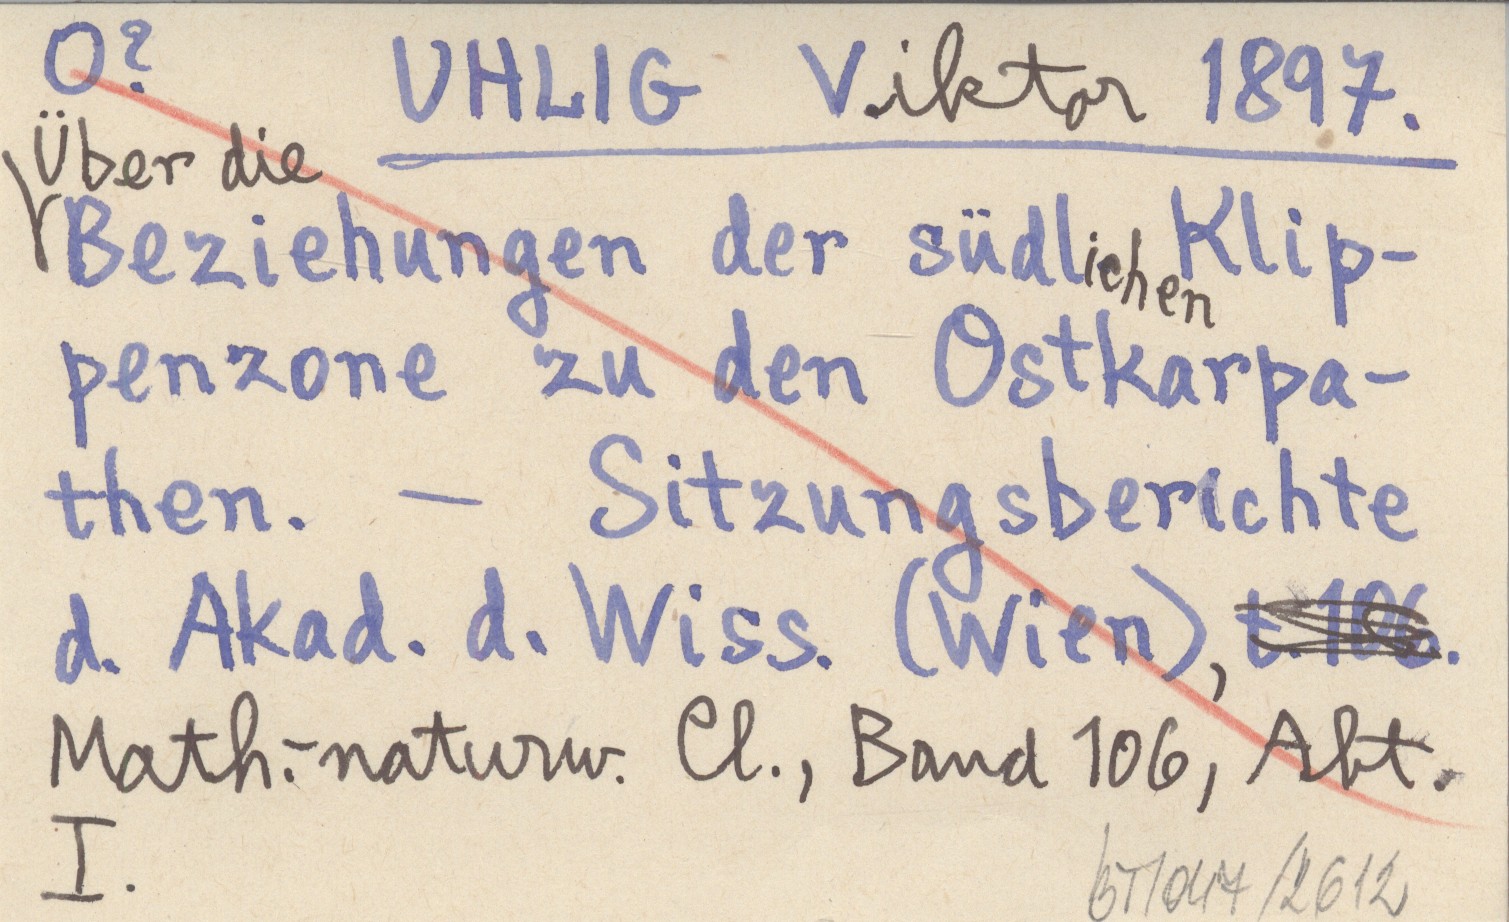 O? UHLIG Viktor 1897.
Über die
Beziehungen der südlichen Klip-
penzone zu den Ostkarpa-
then. — Sitzungsberichte
d. Akad. d. Wiss. (Wien), t. 106.
Math.-naturw. Cl., Band 106, Abt.
I.
/2612